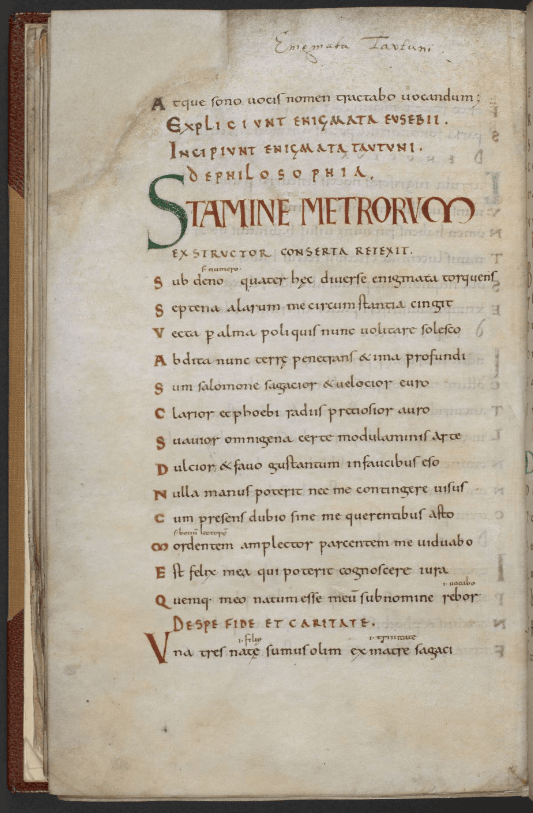 Enigmata Tautuni
Atque sono uocis nomen tractabo uocandum;
EXPLICIUNT ENIGMATA EUSEBII.
INCIPIUNT ENIGMATA TAUTUNI.
DE PHILOSOPHIA.
STAMINE METRORUM
EXSTRUCTOR CONSERTA RETEXIT.
s. numero.
Sub deno quater hęc diverse enigmata torquens
Septena alarum me circumstantia cingit
Vecta p alma poli quis nunc uolitare solesco
6
Abdita nunc terrę penetrans & ima profundi
Sum salomone sagacior & uelocior euro
Clarior et phoebi radiis pretiosior auro
Suauior omnigena certe modulaminis arte
Dulcior & fauo gustantum in faucibus eso
Nulla manus poterit nec me contingere uisus
Cum presens dubio sine me querentibus asto
Mordentem amplector parcentem me uiduabo
Est felix mea qui poterit cognoscere iura
i. uocabo
Quemq; meo natum esse meū sub nomine rebor
DE SPE FIDE ET CARITATE.
i. filię i. trinitate
Una tres natę sumus olim ex matre sagaci